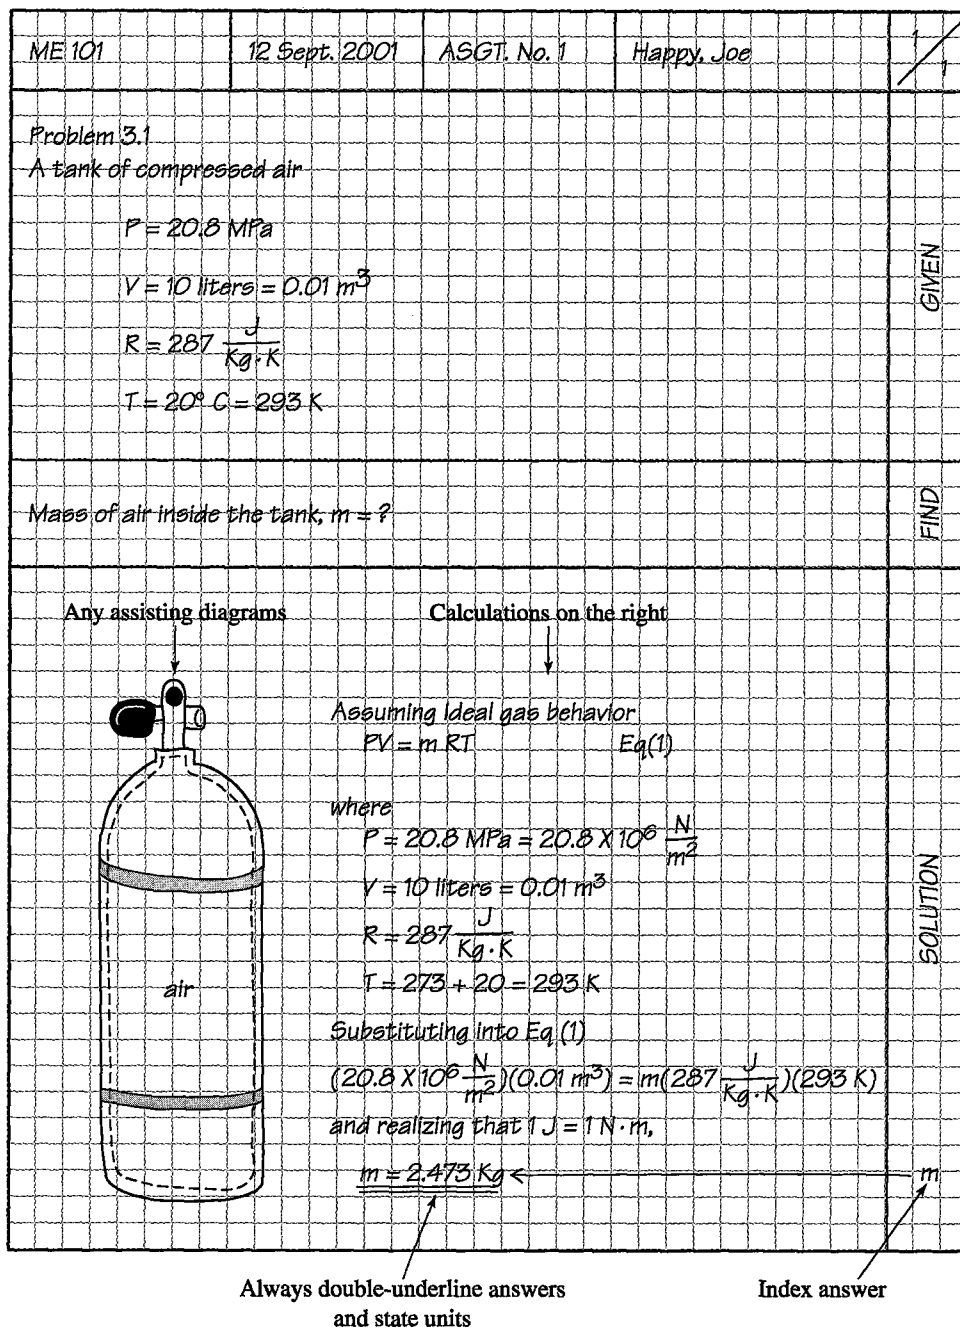 ME 101 12 Sept. 2001 ASGT. No. 1 Happy, Joe 1/1
Problem 3.1
A tank of compressed air
P = 20.8 MPa
V = 10 liters = 0.01 m³
R = 287 J/Kg·K
T = 20° C = 293 K
GIVEN
Mass of air inside the tank, m = ?
FIND
Any assisting diagrams Calculations on the right
Assuming ideal gas behavior
PV = m RT Eq(1)
where
P = 20.8 MPa = 20.8 X 10⁶ N/m²
V = 10 liters = 0.01 m³
R = 287 J/Kg·K
T = 273 + 20 = 293 K
air
SOLUTION
Substituting into Eq (1)
(20.8 X 10⁶ N/m²)(0.01 m³) = m(287 J/Kg·K)(293 K)
and realizing that 1 J = 1 N·m,
m = 2.473 Kg m
Always double-underline answers
and state units
Index answer